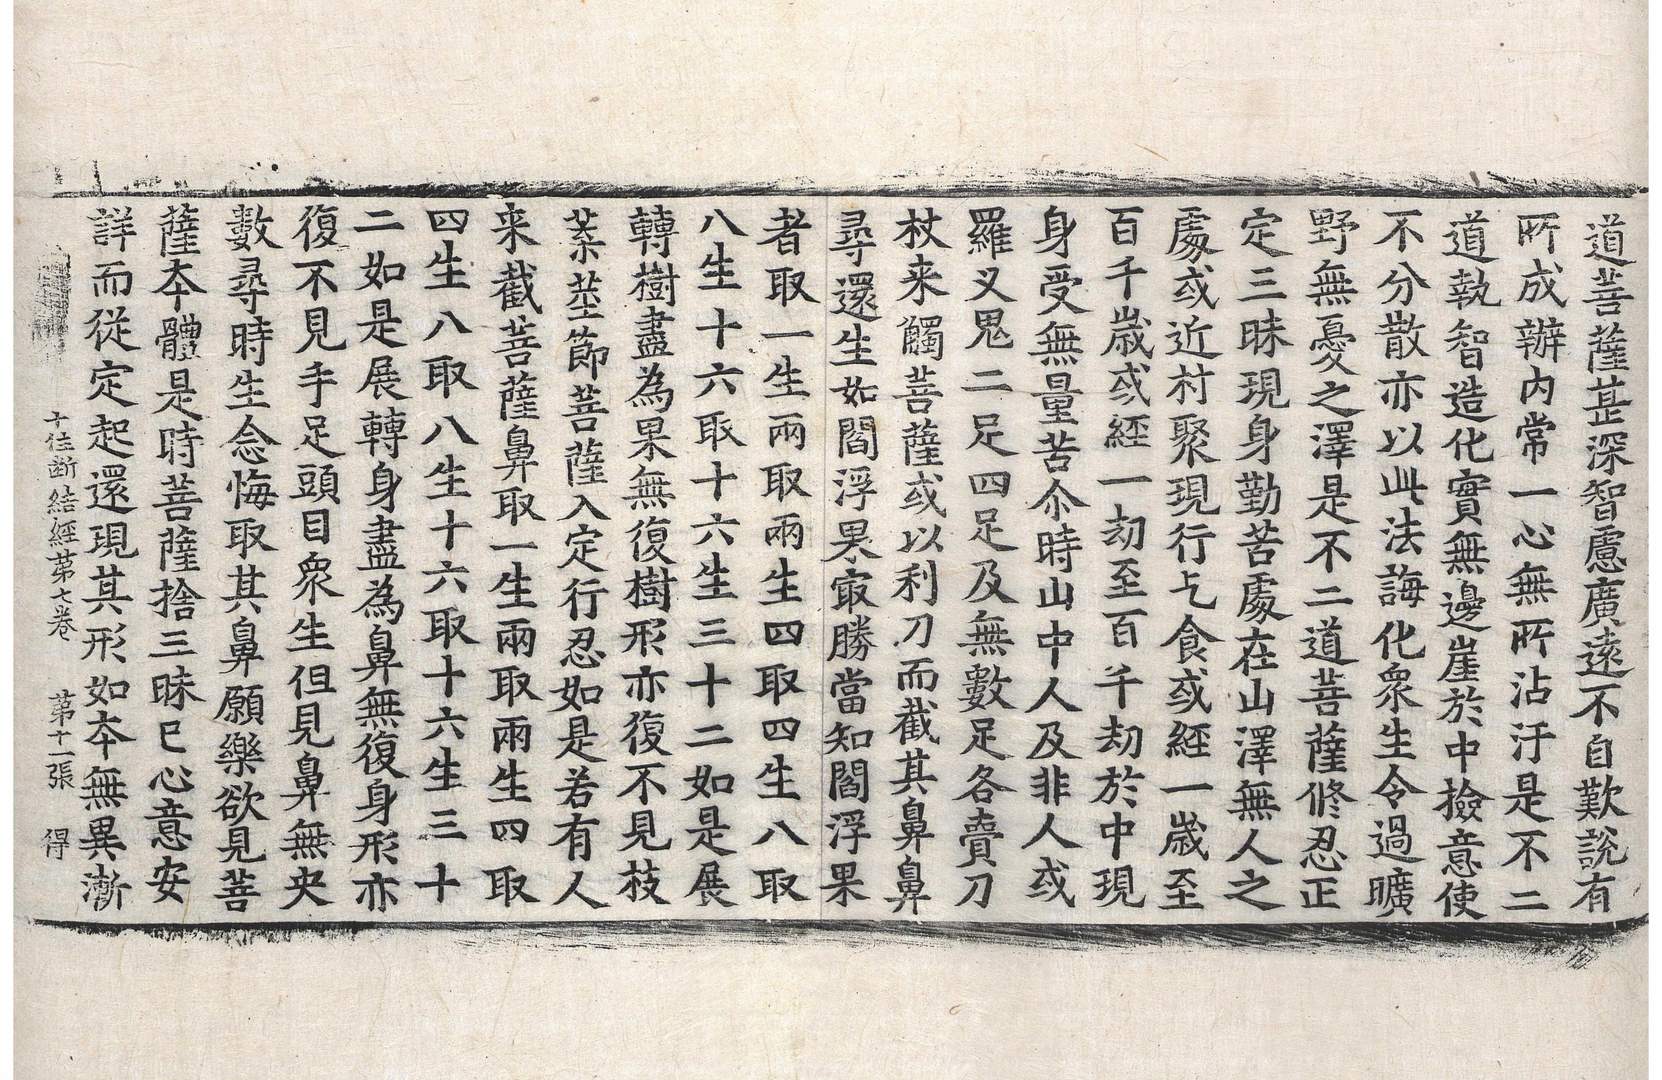 道菩薩甚深智慮廣遠不自歎說有
所成辦內常一心無所沾汙是不二
道執智造化實無邊崖於中撿意使
不分散亦以此法誨化衆生令過曠
野無憂之澤是不二道菩薩修忍正
定三昧現身勤苦處在山澤無人之
處或近村聚現行乞食或經一歲至
百千歲或經一劫至百千劫於中現
身受無量苦尒時山中人及非人或
羅叉鬼二足四足及無數足各賣刀
杖来觸菩薩或以利刀而截其鼻鼻
尋還生如閻浮果㝡勝當知閻浮果
者取一生兩取兩生四取四生八取
八生十六取十六生三十二如是展
轉樹盡為果無復樹形亦復不見枝
葉莖節菩薩入定行忍如是若有人
来截菩薩鼻取一生兩取兩生四取
四生八取八生十六取十六生三十
二如是展轉身盡為鼻無復身形亦
復不見手足頭目衆生但見鼻無央
數尋時生念悔取其鼻願樂欲見菩
薩夲體是時菩薩捨三昧已心意安
詳而從定起還現其形如夲無異漸
十住断結經苐七卷 苐十一張 得